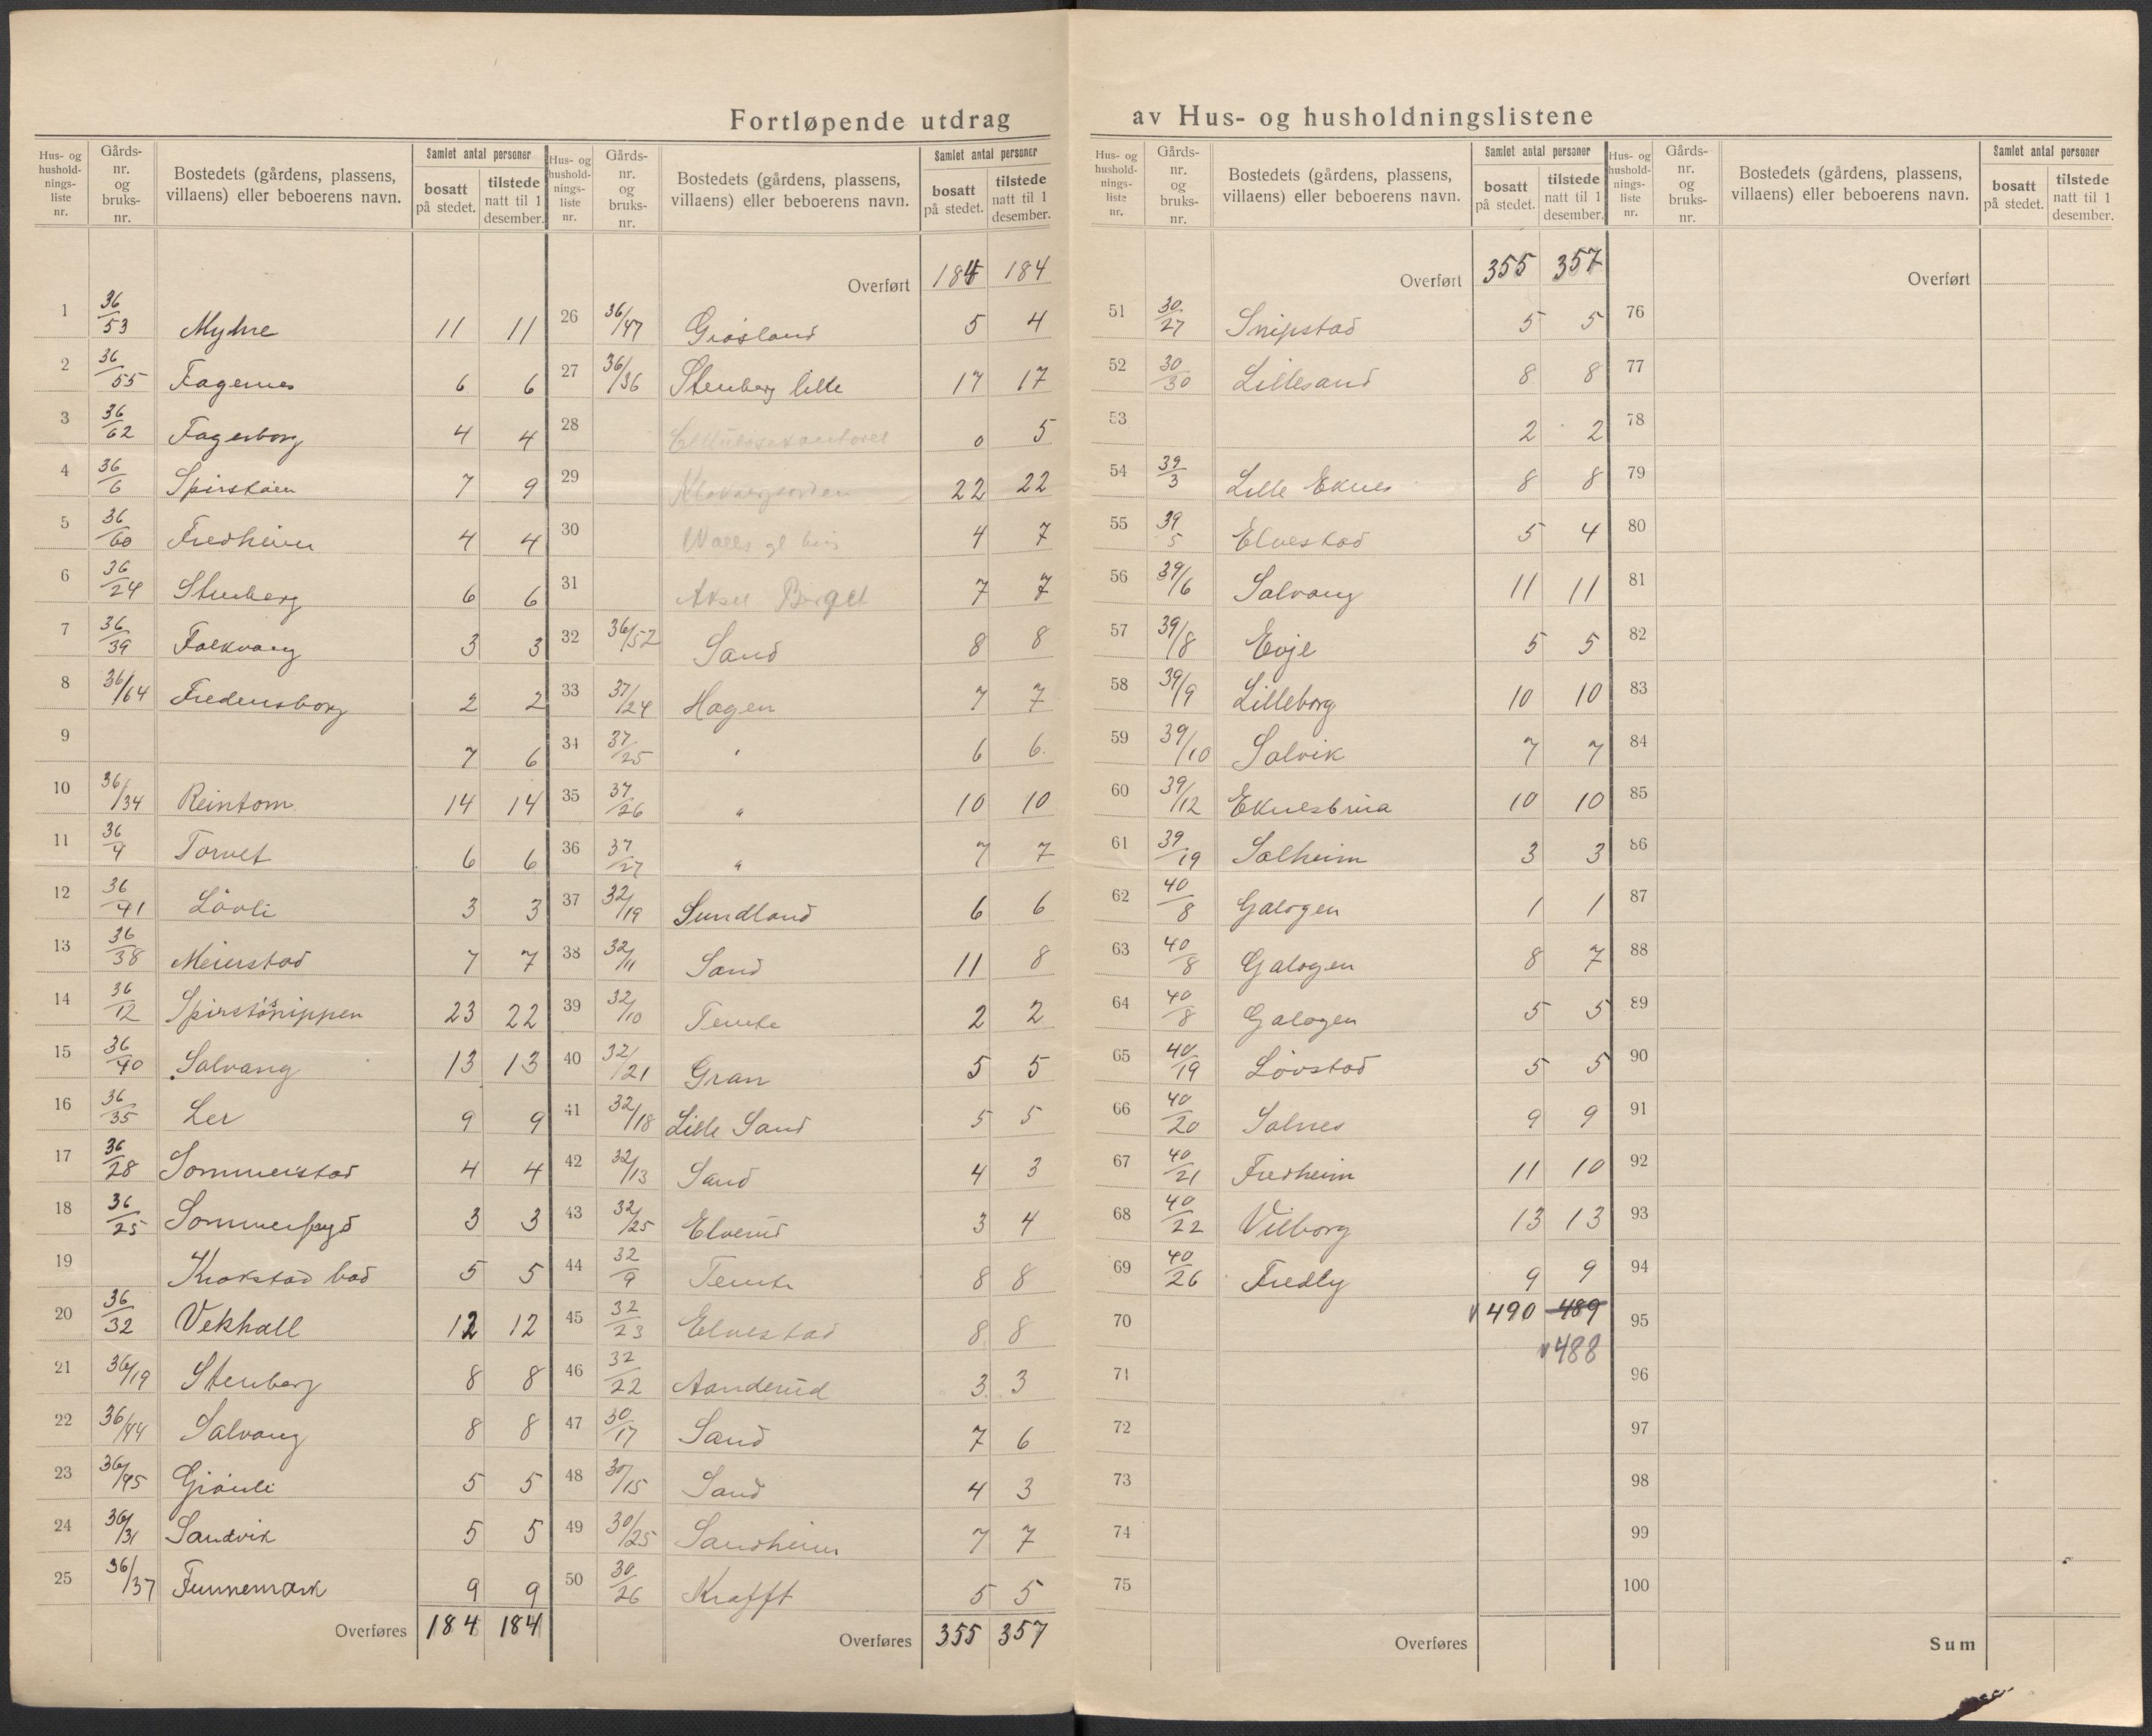 Fortløpende utdrag av Hus- og husholdningslistene
Hus- og husholdnings- liste nr. | Gårds- nr. og bruks- nr. | Bostedets (gårdens, plassens, villaens) eller beboerens navn. | Samlet antal personer | bosatt på stedet. | tilstede natt til 1 desember.
1 36/53 Myhre 11 11
2 36/55 Fagernes 6 6
3 36/62 Fagerborg 4 4
4 36/6 Spirstøen 7 9
5 36/60 Fredheim 4 4
6 36/24 Stenberg 6 6
7 36/39 Folkvang 3 3
8 36/64 Fredensborg 2 2
9 7 6
10 36/34 Reintom 14 14
11 36/4 Torvet 6 6
12 36/41 Lövli 3 3
13 36/38 Meierstad 7 7
14 36/12 Spirstösnippen 23 22
15 36/40 Solvang 13 13
16 36/35 Ler 9 9
17 36/28 Sommerstad 4 4
18 36/25 Sommerfryd 3 3
19 Krokstad bad 5 5
20 36/32 Vekhall 12 12
21 36/19 Stenberg 8 8
22 36/44 Solvang 8 8
23 36/45 Grönli 5 5
24 36/31 Sandvik 5 5
25 36/37 Funnemark 9 9
Overføres 184 184
Hus- og husholdnings- liste nr. | Gårds- nr. og bruks- nr. | Bostedets (gårdens, plassens, villaens) eller beboerens navn. | Samlet antal personer | bosatt på stedet. | tilstede natt til 1 desember.
Overført 184 184
26 36/47 Gråsland 5 4
27 36/36 Stenberg lille 17 17
28 0 5
29 22 22
30 4 7
31 Aksel Berget 7 7
32 36/52 Sand 8 8
33 37/24 Hagen 7 7
34 37/25 " 6 6
35 37/26 " 10 10
36 37/27 " 7 7
37 32/19 Sundland 6 6
38 32/11 Sand 11 8
39 32/10 Temte 2 2
40 32/21 Gran 5 5
41 32/18 Lille Sand 5 5
42 32/13 Sand 4 3
43 32/25 Elverud 3 4
44 32/9 Temte 8 8
45 32/23 Elvestad 8 8
46 32/22 Aanderud 3 3
47 30/17 Sand 7 6
48 30/15 Sand 4 3
49 30/25 Sandheim 7 7
50 30/26 Krafft 5 5
Overføres 355 357
Hus- og husholdnings- liste nr. | Gårds- nr. og bruks- nr. | Bostedets (gårdens, plassens, villaens) eller beboerens navn. | Samlet antal personer | bosatt på stedet. | tilstede natt til 1 desember.
Overført 355 357
51 30/27 Snipstad 5 5
52 30/30 Lillesand 8 8
53 2 2
54 39/3 Lille Eknes 8 8
55 39/5 Elvestad 5 4
56 39/6 Solvang 11 11
57 39/8 Evje 5 5
58 39/9 Lilleborg 10 10
59 39/10 Solvik 7 7
60 39/12 Eknesbrua 10 10
61 39/19 Solheim 3 3
62 40/8 Galogen 1 1
63 40/8 Galogen 8 7
64 40/8 Galogen 5 5
65 40/19 Lövstad 5 5
66 40/20 Solnes 9 9
67 40/21 Fredheim 11 10
68 40/22 Vilborg 13 13
69 40/26 Fredly 9 9
70 490 489
488
71
72
73
74
75
Overføres
Hus- og husholdnings- liste nr. | Gårds- nr. og bruks- nr. | Bostedets (gårdens, plassens, villaens) eller beboerens navn. | Samlet antal personer | bosatt på stedet. | tilstede natt til 1 desember.
Overført
76
77
78
79
80
81
82
83
84
85
86
87
88
89
90
91
92
93
94
95
96
97
98
99
100
Sum